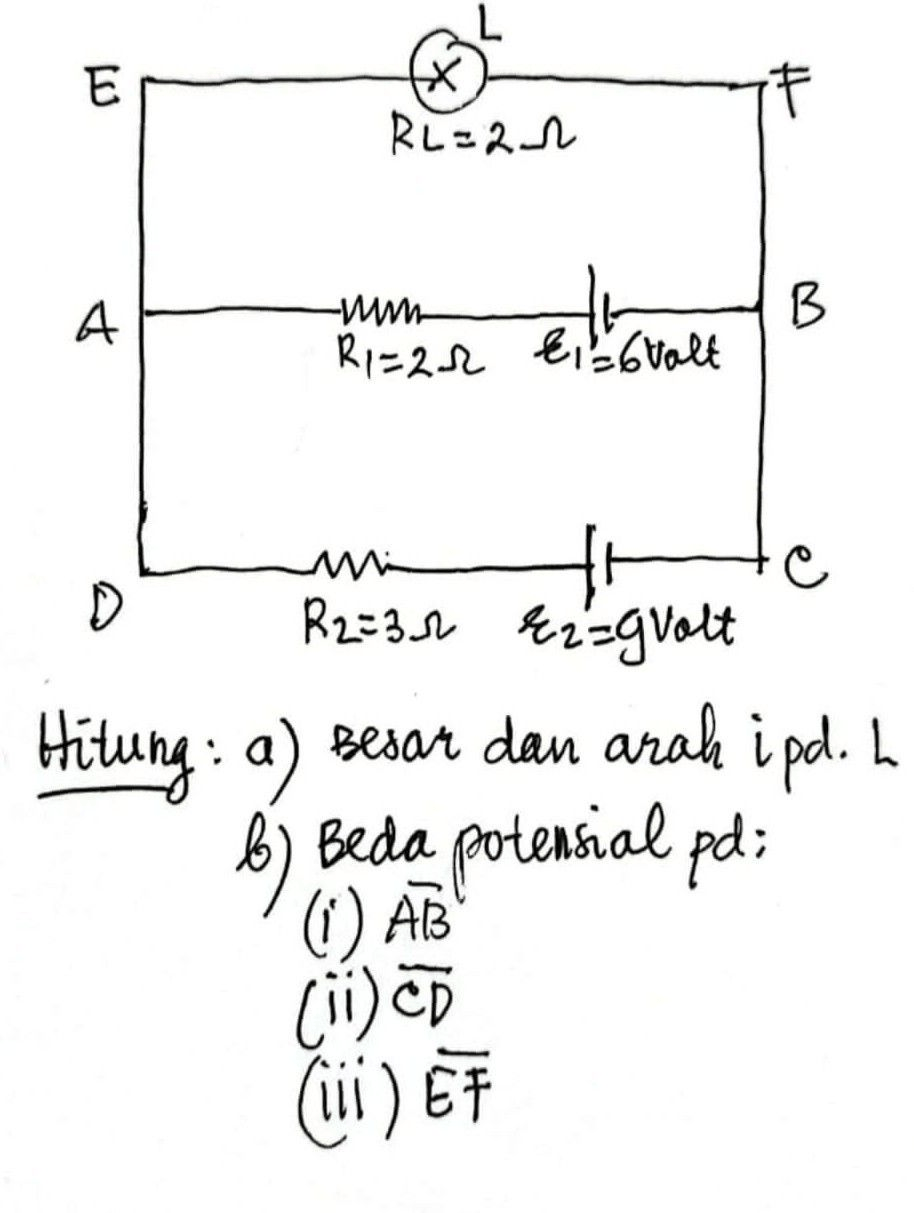 L
E F
RL=2Ω
A B
R1=2Ω ε1=6Volt
D C
R2=3Ω ε2=9Volt
Hitung: a) Besar dan arah i pd. L
b) Beda potensial pd:
(i) A̅B̅
(ii) C̅D̅
(iii) E̅F̅